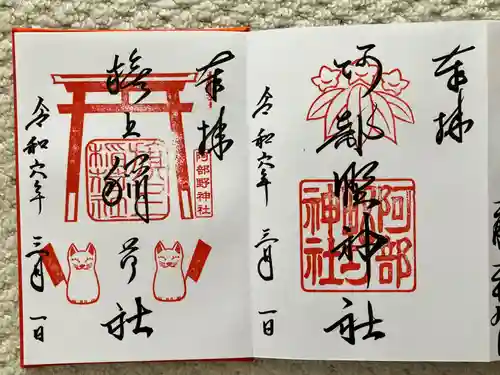 奉拝
阿部野神社
令和六年
三月一日
奉拝
旗上稲荷社
阿部野神社
令和六年
三月一日